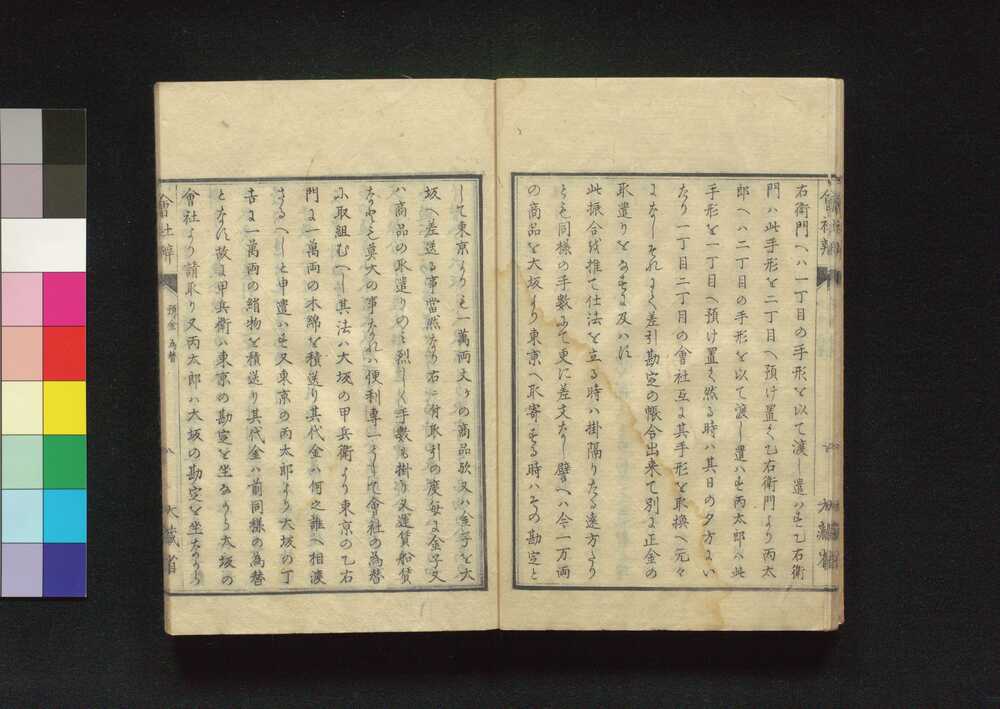 右衛門へハ一丁目の手形を以て渡し遣ハすべし乙右衛
門ハ此手形を二丁目へ預け置く乙右衛門より丙太
郎へハ二丁目の手形を以て渡し遣ハす丙太郎ハ此
手形を一丁目へ預け置き然る時ハ其日の夕方にい
たり一丁目二丁目の會社互に其手形を取換へ元々
になしそれにて差引勘定の帳合出来て別に正金の
取遣りをなすに及ハず
此振合を推て仕法を立る時ハ掛隔りたる遠方たり
とも同様の手數にて更に差支なし譬へハ今一万両
の商品を大坂より東京へ取寄する時ハその勘定と
會社辨
八
大藏省
して東京よりも一萬両丈ケの商品歟又ハ金子を大
坂へ差送る事當然なり右に付取引の度毎に金子又
ハ商品の取遣りのミ烈しく手數も掛り又運賃船賃
なども莫大の事なれハ便利専一にして會社の為替
に取組むべし其法ハ大坂の甲兵衛より東京の乙右
門に一萬両の木綿を積送り其代金ハ何之誰へ相渡
さるべしと申遣ハす又東京の丙太郎より大坂の丁
吉に一萬両の絹物を積送り其代金ハ前同様の為替
となす故に甲兵衛ハ東京の勘定を坐ながら大坂の
會社より請取り又丙太郎ハ大坂の勘定を坐ながら
會社辨
預金 為替
八
大藏省